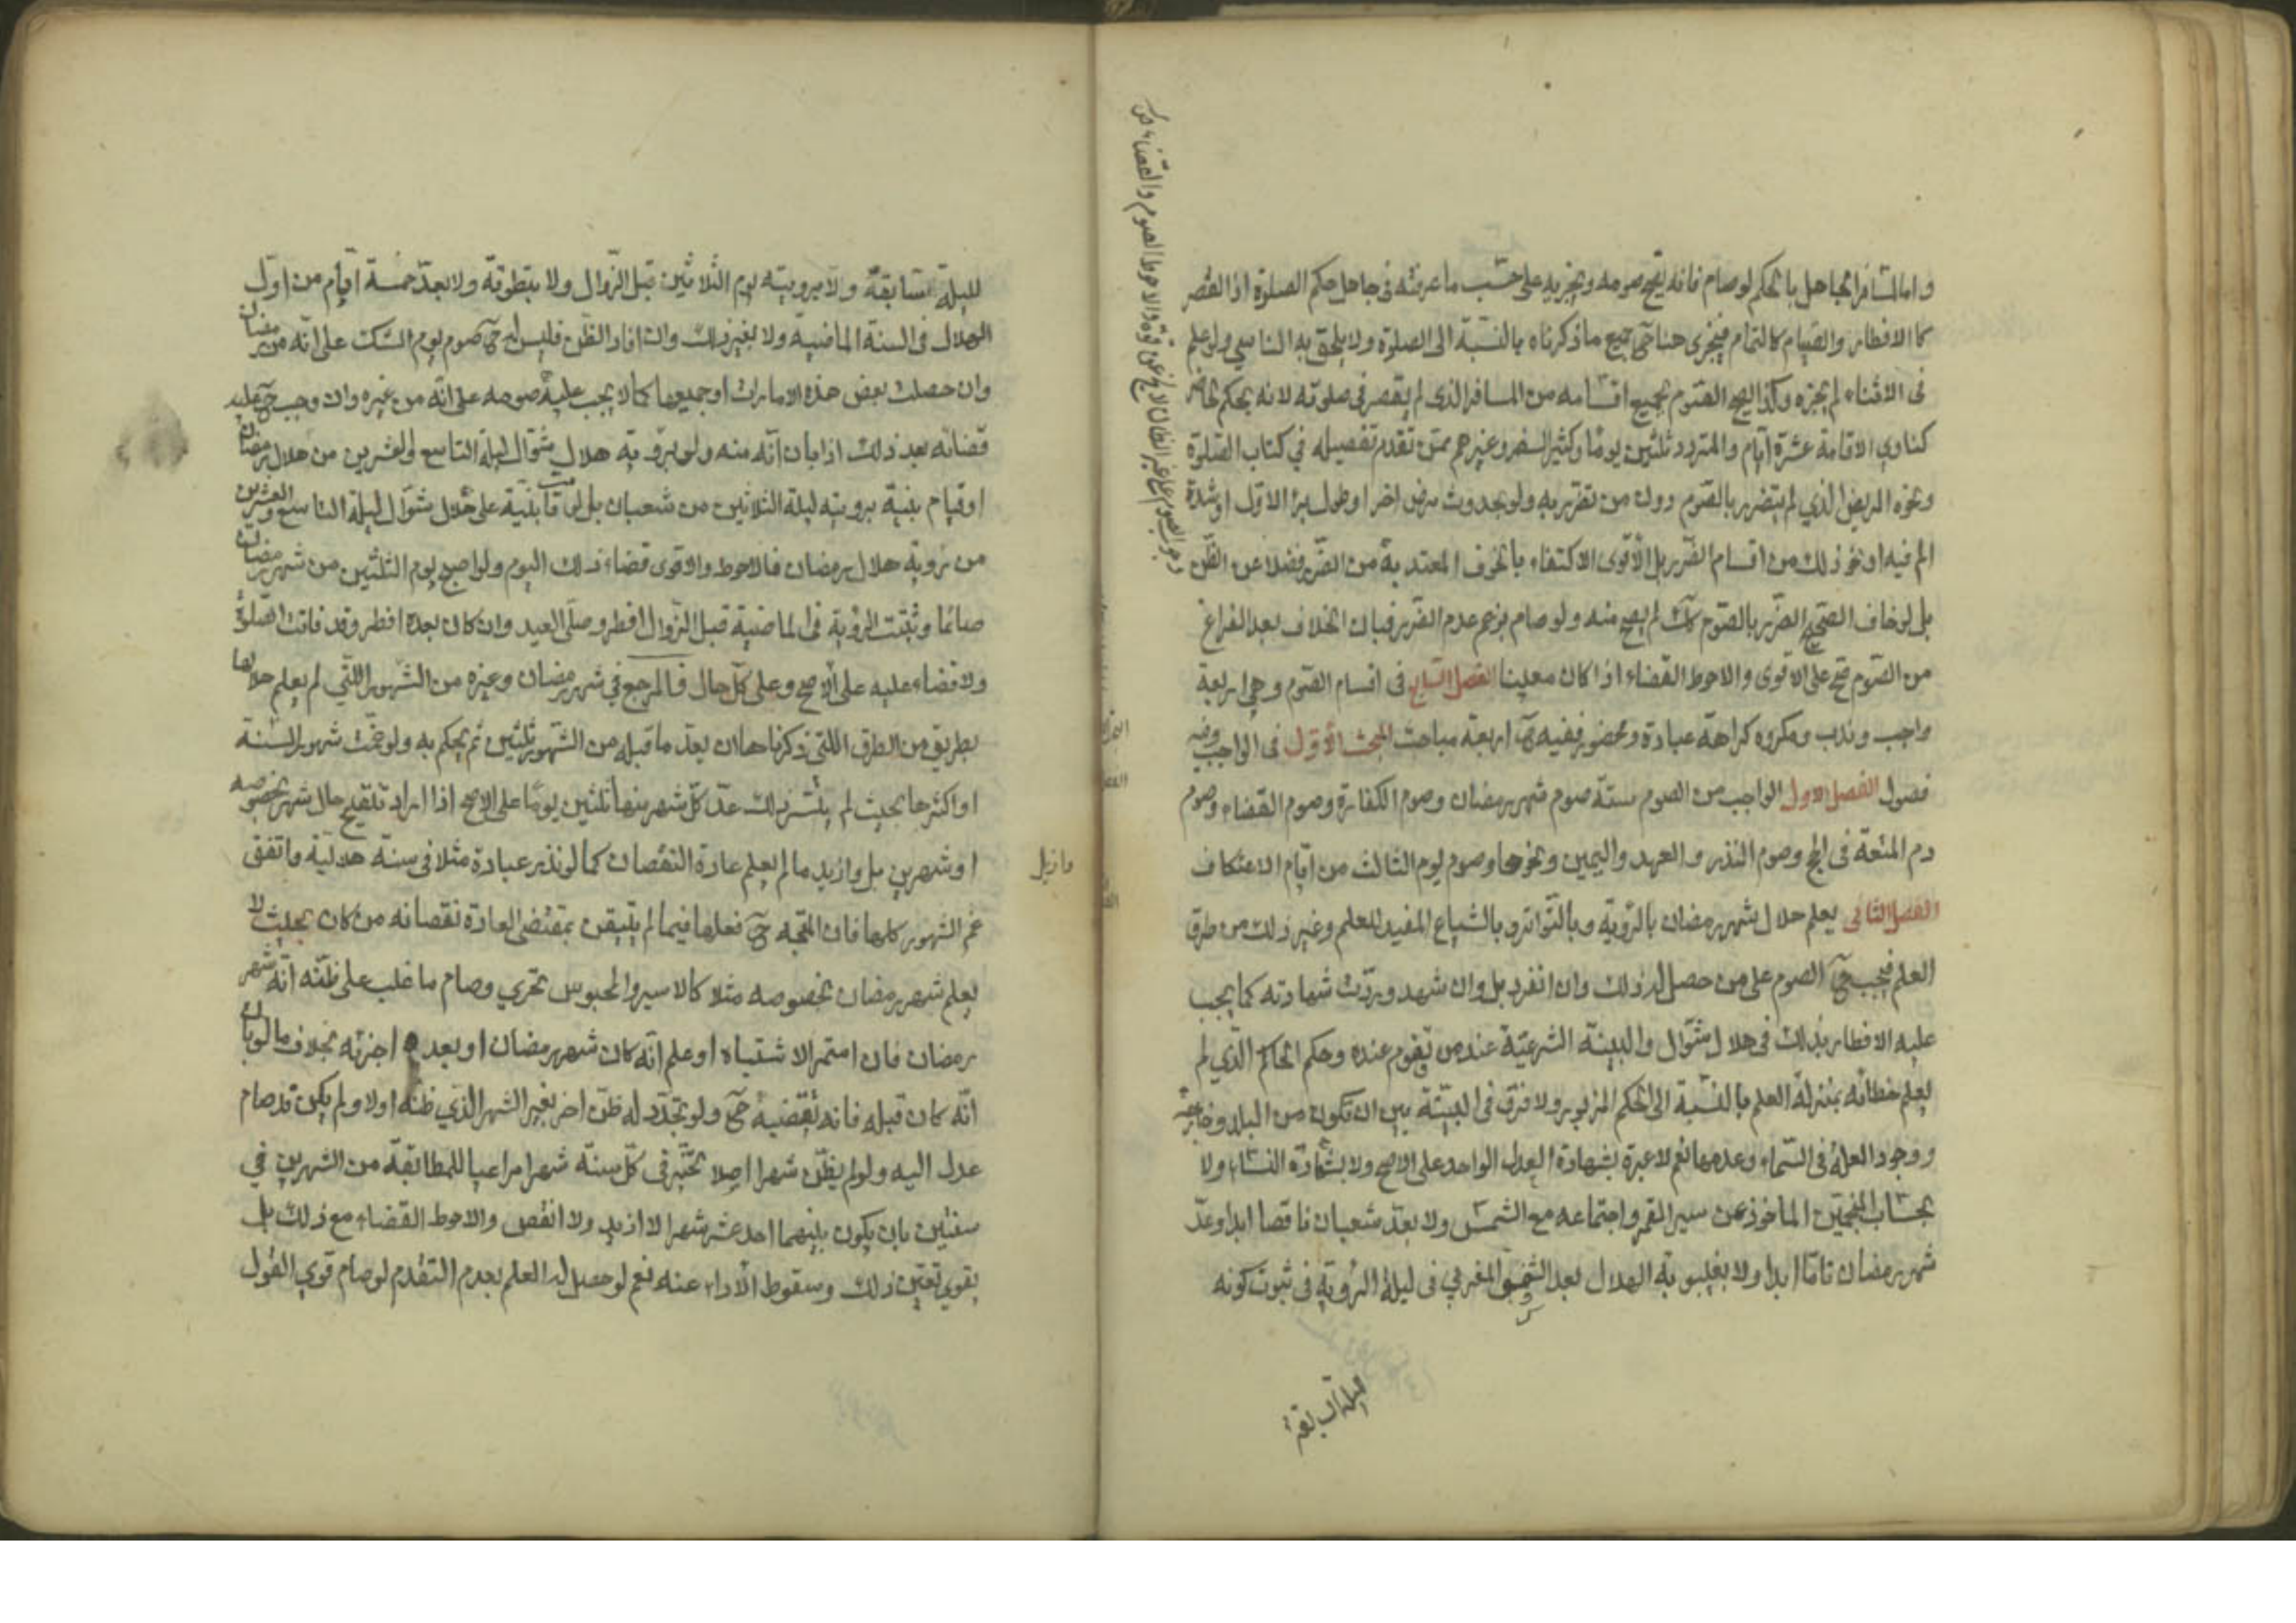 واما المسافر الجاهل بالحكم لو صام فانه يصح صومه ويجزيه على حسب ما عرفته في جاهل حكم الصلوة اذ القصر
كالافطار والصيام كالتمام فيجرى هنا ح جميع ما ذكرناه بالنسبة الى الصلوة ولا يلحق به الناسي ولو علم
في الاثناء لم يجزه وكذا يصح الصوم بجميع اقسامه من المسافر الذي لم يقصر في صلوته لانه بحكم الحاضر
كناوي الاقامة عشرة ايام والمتردد ثلثين يوما وكثير السفر وغيرهم ممن تقدم تفصيله في كتاب الصلوة
ونحوه المريض الذي لم يتضرر بالصوم دون من تضرر به ولو بحدوث مرض اخر او طول برء الاول او شدة
الم فيه او نحو ذلك من اقسام الضرر بل الاقوى الاكتفاء بالخوف المعتد به من الضرر فضلا عن الظن
بل لو خاف الصحيح الضرر بالصوم كك لم يصح منه ولو صام بزعم عدم الضرر فبان الخلاف بعد الفراغ
من الصوم صح على الاقوى والاحوط القضاء اذا كان معينا الفصل السابع في اقسام الصوم وهي اربعة
واجب وندب ومكروه كراهة عبادة ومحضور ففيه ح اربعة مباحث المبحث الاول في الواجب وفيه
فصول الفصل الاول الواجب من الصوم ستة صوم شهر رمضان وصوم الكفارة وصوم القضاء وصوم
دم المتعة في الحج وصوم النذر والعهد واليمين ونحوها وصوم يوم الثالث من ايام الاعتكاف
الفصل الثاني يعلم هلال شهر رمضان بالرؤية وبالتواتر وبالشياع المفيد للعلم وغير ذلك من طرق
العلم فيجب ح الصوم على من حصل له ذلك وان انفرد بل وان شهد وردت شهادته كما يجب
عليه الافطار بذلك في هلال شوال والبينة الشرعية عند من تقوم عنده وحكم الحاكم الذي لم
يعلم خطائه بمنزلة العلم بالنسبة الى الحكم المزبور ولا فرق في البينة بين ان تكون من البلد وخارجه
ووجود العلة في السماء وعدمها نعم لا عبرة بشهادة العدل الواحد على الاصح ولا بشهادة النساء ولا
بحساب المنجمين الماخوذ من سير القمر واجتماعه مع الشمس ولا بعد شعبان ناقصا ابدا وعد
شهر رمضان تاما ابدا ولا بغيبوبة الهلال بعد الشفق المغربي في ليلة الرؤية في ثبوت كونه
لليلة السابقة
لليلة سابقة ولا برويته يوم الثلاثين قبل الزوال ولا بتطوقه ولا بعد خمسة ايام من اول
الهلال في السنة الماضية ولا بغير ذلك وان افاد الظن فليس له ح صوم يوم الشك على انه من رمضان
وان حصلت بعض هذه الامارات او جميعها كما لا يجب عليه صومه على انه من غيره وان وجب ح عليه
قضائه بعد ذلك اذا بان انه منه ولو برؤية هلال شوال ليلة التاسع والعشرين من هلال رمضان
او قيام بينة برويته ليلة الثلاثين من شعبان بل لو قامت بينة على هلال شوال ليلة التاسع والعشرين
من رؤية هلال رمضان فالاحوط والاقوى قضاء ذلك اليوم ولو اصبح يوم الثلثين من شهر رمضان
صائما وثبتت الرؤية في الماضية قبل الزوال افطر وصلى العيد وان كان بعده افطر وقد فاتت الصلوة
ولا قضاء عليه على الاصح وعلى كل حال فالمرجع في شهر رمضان وغيره من الشهور اللتي لم يعلم هلالها
بطريق من الطرق اللتي ذكرناها ان يعد ما قبله من الشهور ثلثين ثم يحكم به ولو غمت شهور السنة
او اكثرها بحيث لم يتيسر ذلك عد كل شهر منها ثلثين يوما على الاصح اذا اراد تنقيح حال شهر بخصوصه
او شهرين بل وازيد ما لم يعلم عادة النقصان كما لو نذر عبادة مثلا في سنة هلالية واتفق
وازيد
غم الشهور كلها فان المتجه ح فعلها فيما لم يتيقن بمقتضى العادة نقصانه من كان بحيث لا
يعلم شهر رمضان بخصوصه مثلا كالاسير والمحبوس تحري وصام ما غلب على ظنه انه شهر
رمضان فان استمر الاشتباه او علم انه كان شهر رمضان او بعده اجزئه بخلاف ما لو بان
انه كان قبله فانه يقضيه ح ولو تجدد له ظن اخر بغير الشهر الذي ظنه اولا ولم يكن قد صام
عدل اليه ولو لم يظن شهرا اصلا تخير في كل سنة شهرا مراعيا للمطابقة من الشهرين في
سنتين بان يكون بينهما احد عشر شهرا لا ازيد ولا انقص والاحوط القضاء مع ذلك بل
يقوي تعين ذلك وسقوط الاداء عنه نعم لو حصل له العلم بعدم التقدم لو صام قوي القول